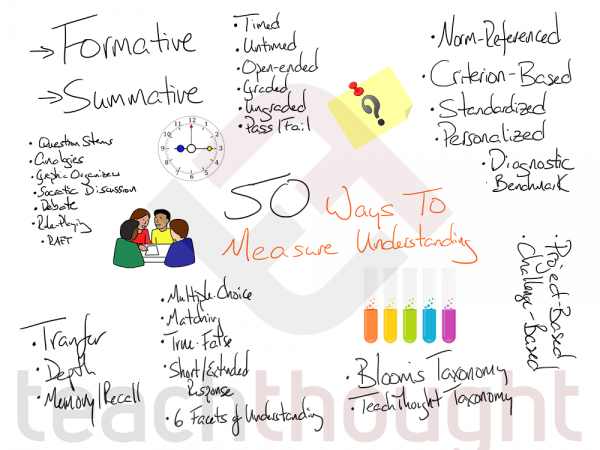 → Formative
→ Summative
• Timed
• Untimed
• Open-ended
• Graded
• Ungraded
• Pass/Fail
?
• Norm-Referenced
• Criterion-Based
• Standardized
• Personalized
• Diagnostic
• Benchmark
• Question Stems
• Analogies
• Graphic Organizers
• Socratic Discussion
• Debate
• Role-Playing
• RAFT
12
1
2
3
4
5
6
7
8
9
10
11
50 Ways To
Measure Understanding
• Project-Based
• Challenge-Based
• Multiple-Choice
• Matching
• True-False
• Short/Extended
Response
• 6 Facets of Understanding
• Transfer
• Depth
• Memory/Recall
• Bloom's Taxonomy
• TeachThought Taxonomy
teachthought